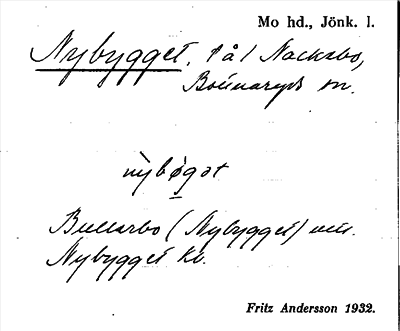 Mo hd., Jönk. l.
Nybygget, t å / Nackebo,
Bottnaryds sn.
nỳbøgət
Bullarbo (Nybygget)
Nybygget kb.
Fritz Andersson 1932.